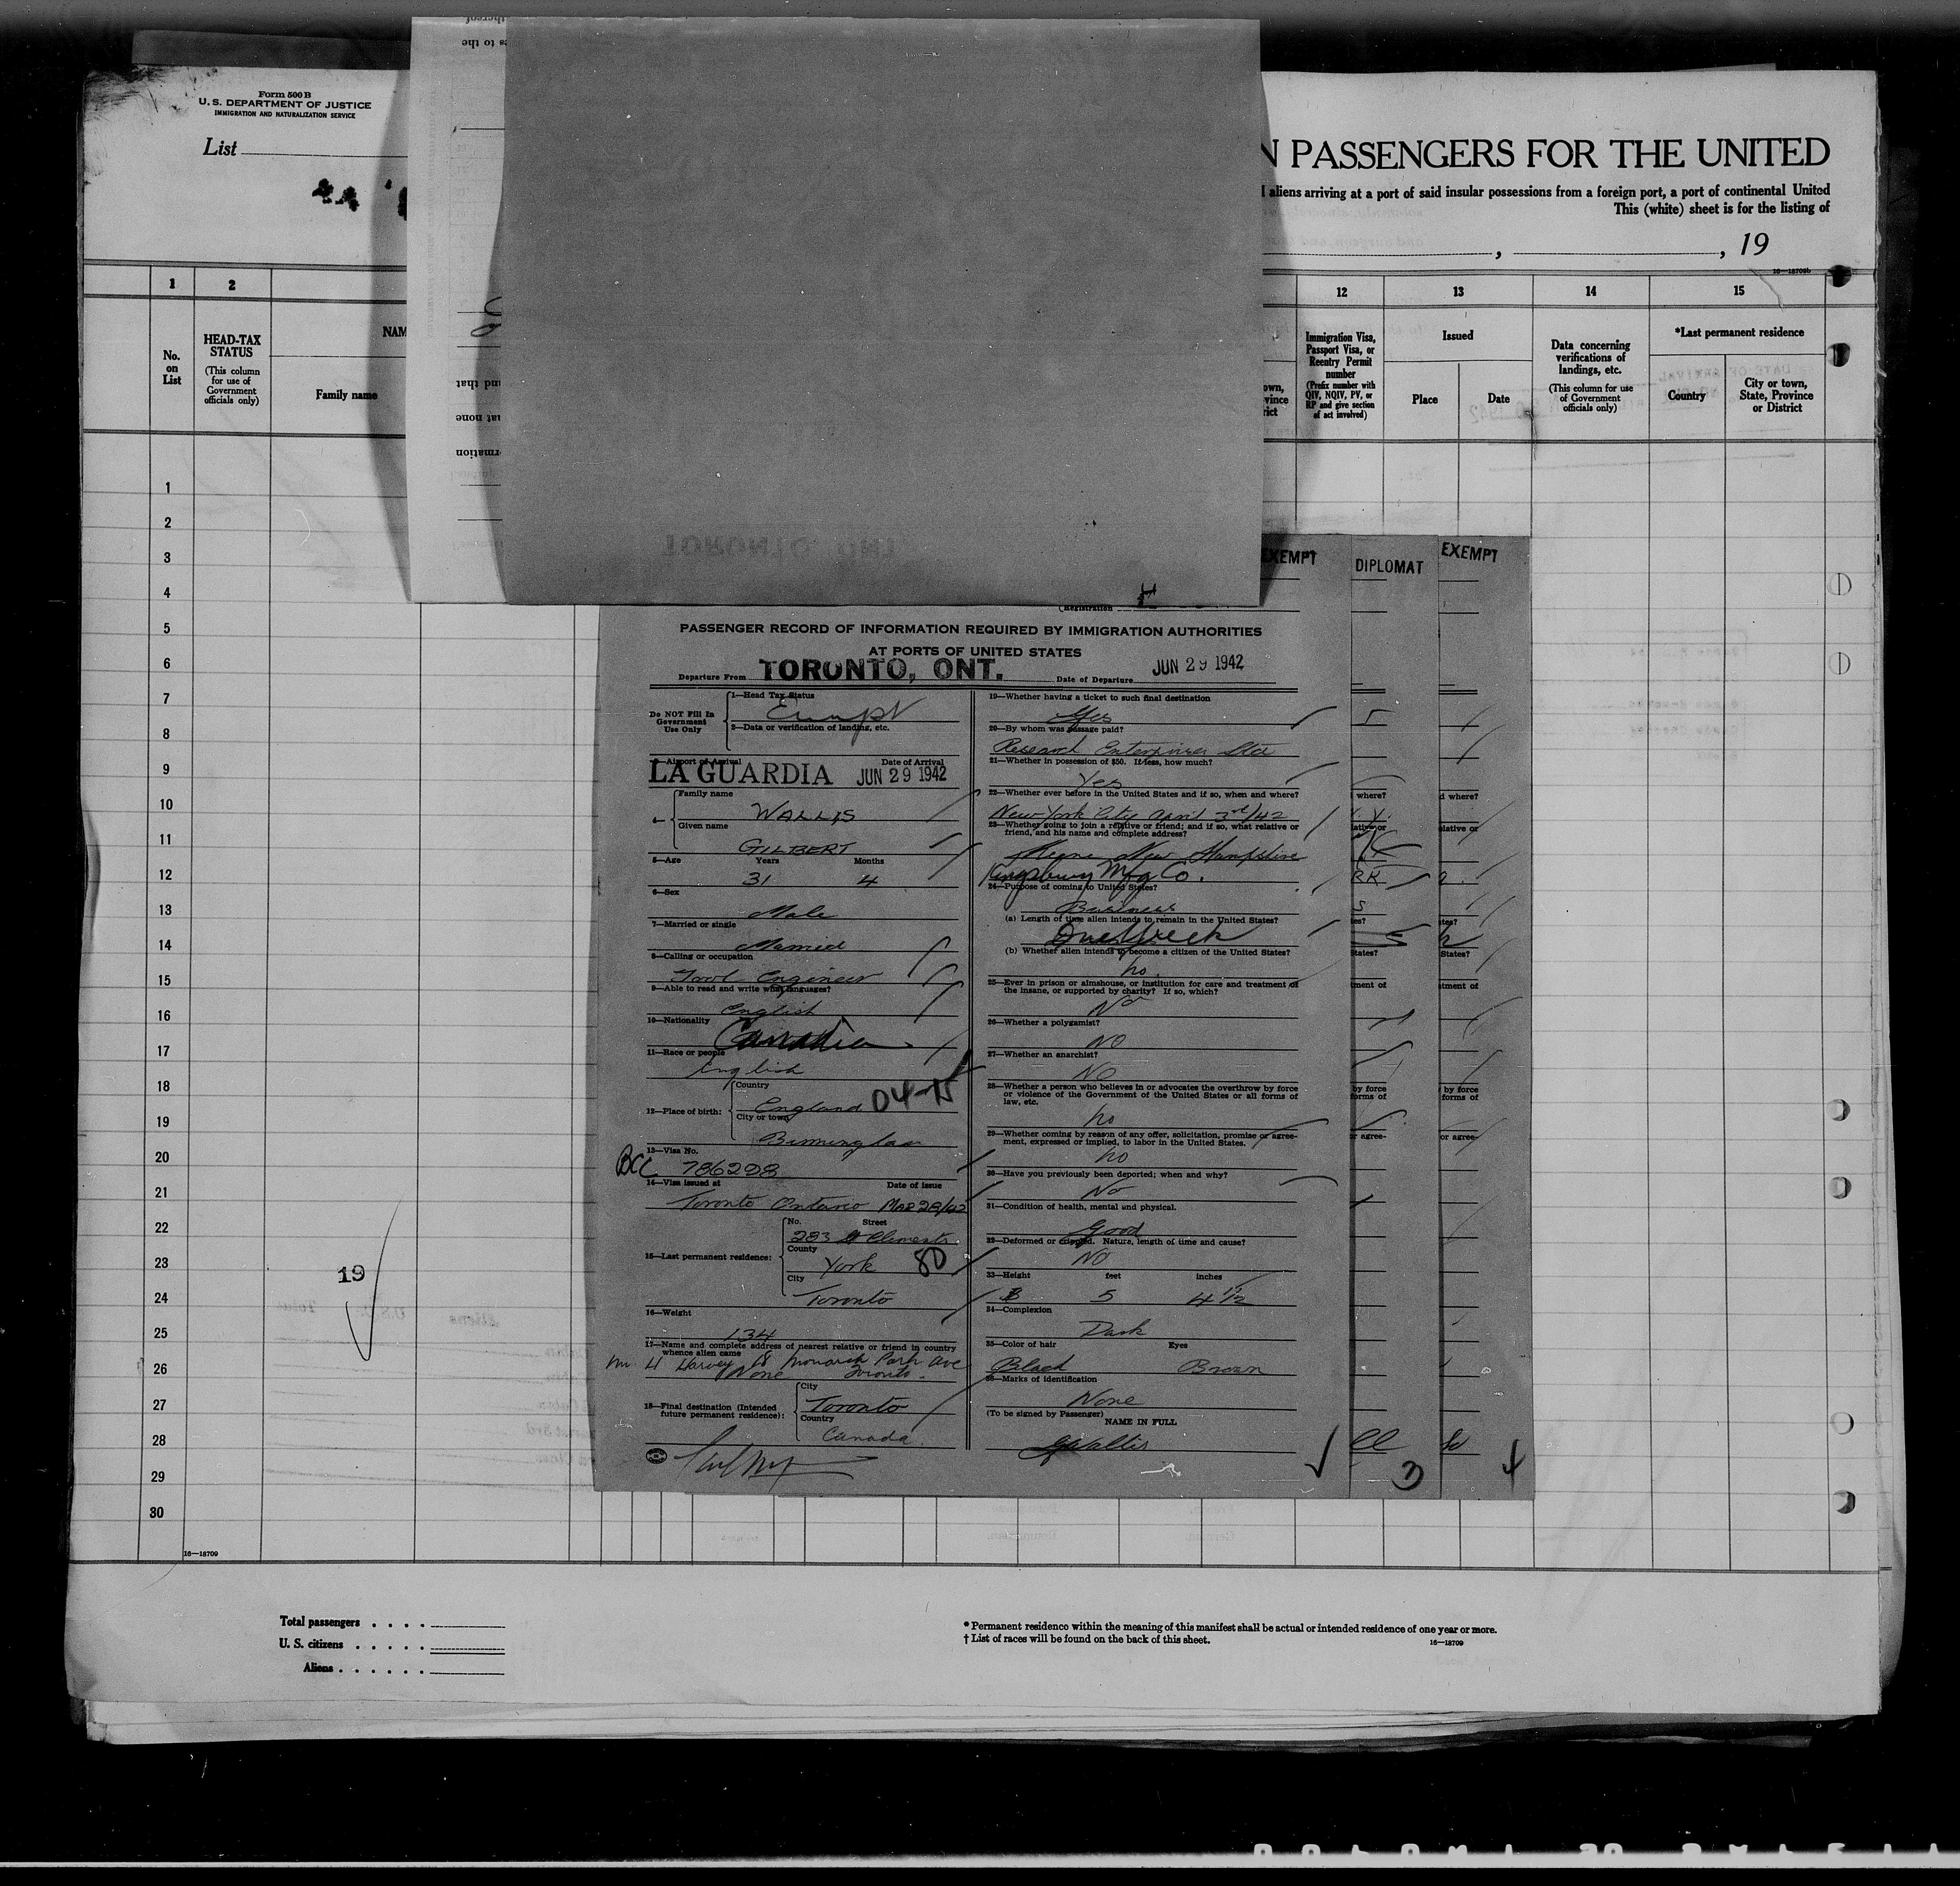 Form 500 B
U. S. DEPARTMENT OF JUSTICE
IMMIGRATION AND NATURALIZATION SERVICE
List
N PASSENGERS FOR THE UNITED
aliens arriving at a port of said insular possessions from a foreign port, a port of continental United
This (white) sheet is for the listing of
, , 19
16—18709b
1 2 12 13 14 15
No. on List
HEAD-TAX STATUS
(This column for use of Government officials only)
NAM
Family name
own,
vince
rict
Immigration Visa, Passport Visa, or Reentry Permit number
(Prefix number with QIV, NQIV, PV, or RP and give section of act involved)
Issued
Place Date
Data concerning verifications of landings, etc.
(This column for use of Government officials only)
*Last permanent residence
Country
City or town, State, Province or District
1
2
3
4
5
6
7
8
9
10
11
12
13
14
15
16
17
18
19
20
21
22
23
24
25
26
27
28
29
30
19
EXEMPT DIPLOMAT EXEMPT
(Registration
PASSENGER RECORD OF INFORMATION REQUIRED BY IMMIGRATION AUTHORITIES
AT PORTS OF UNITED STATES
Departure From TORONTO, ONT. Date of Departure JUN 29 1942
Do NOT Fill In Government Use Only
1—Head Tax Status
Exempt
2—Data or verification of landing, etc.
3—Airport of Arrival Date of Arrival
LA GUARDIA JUN 29 1942
Family name
WALLIS
Given name
GILBERT
5—Age Years Months
31 4
6—Sex
Male
7—Married or single
Married
8—Calling or occupation
Tool Engineer
9—Able to read and write what languages?
English
10—Nationality
Canadian
11—Race or people
English
12—Place of birth:
Country
England 04-N
City or town
Birmingham
13—Visa No.
BCC 786298
14—Visa issued at Date of issue
Toronto Ontario Mar 28/42
15—Last permanent residence:
No. Street
283 St Clements
County
York 80
City
Toronto
16—Weight
134
17—Name and complete address of nearest relative or friend in country whence alien came
Mr. H Harvey 18 Monarch Park Ave
None Toronto.
18—Final destination (Intended future permanent residence):
City
Toronto
Country
Canada.
19—Whether having a ticket to such final destination
Yes
20—By whom was passage paid?
Research Enterprises Ltd
21—Whether in possession of $50. If less, how much?
Yes
22—Whether ever before in the United States and if so, when and where?
New York City April 3rd/42
23—Whether going to join a relative or friend; and if so, what relative or friend, and his name and complete address?
Keene New Hampshire
Kingsbury Mfg Co.
24—Purpose of coming to United States?
Business
(a) Length of time alien intends to remain in the United States?
One Week
(b) Whether alien intends to become a citizen of the United States?
no.
25—Ever in prison or almshouse, or institution for care and treatment of the insane, or supported by charity? If so, which?
No
26—Whether a polygamist?
NO
27—Whether an anarchist?
NO
28—Whether a person who believes in or advocates the overthrow by force or violence of the Government of the United States or all forms of law, etc.
no
29—Whether coming by reason of any offer, solicitation, promise or agreement, expressed or implied, to labor in the United States.
no
30—Have you previously been deported; when and why?
No
31—Condition of health, mental and physical.
Good
32—Deformed or crippled. Nature, length of time and cause?
NO
33—Height feet inches
5 4 1/2
34—Complexion
Dark
35—Color of hair Eyes
Black Brown
36—Marks of identification
None
(To be signed by Passenger)
NAME IN FULL
GWallis
3
16—18709
Total passengers . . . .
U. S. citizens . . . . .
Aliens . . . . . .
* Permanent residence within the meaning of this manifest shall be actual or intended residence of one year or more.
† List of races will be found on the back of this sheet.
16—18709